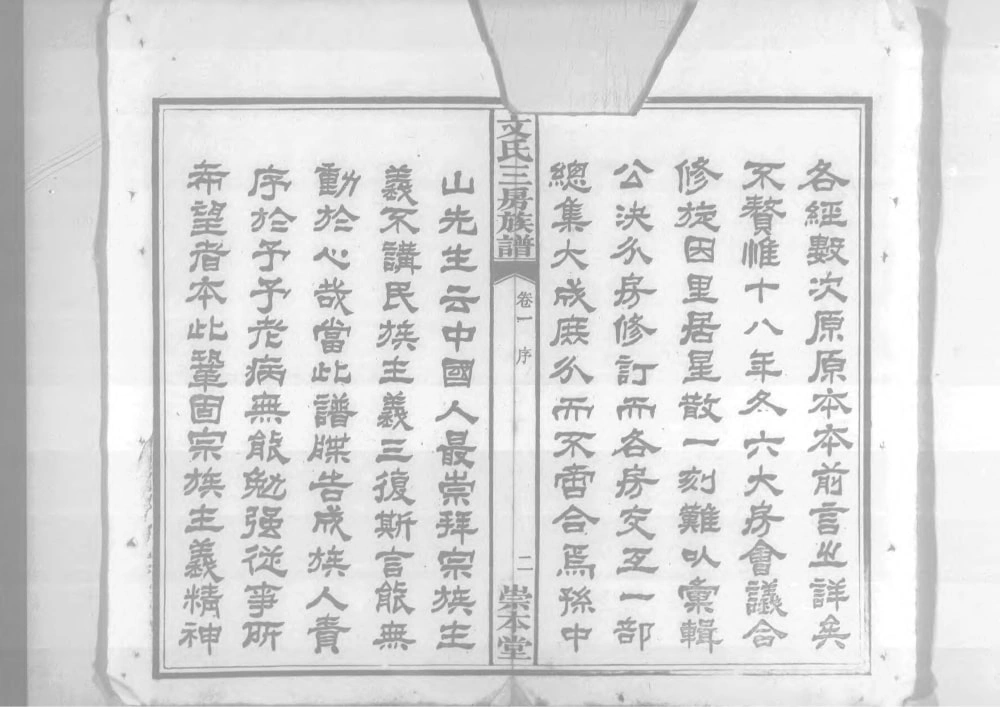 各經數次原原本本前言之詳矣
不贅惟十八年冬六大房會議合
修旋因里居星散一刻難以彙輯
公決分房修訂而各房交互一部
總集大成庶分而不啻合焉孫中
文氏三房族譜
卷一 序
二
崇本堂
山先生云中國人最崇拜宗族主
義不講民族主義三復斯言能無
動於心哉當此譜牒告成族人責
序於予予老病無能勉强從事所
希望者本此鞏固宗族主義精神